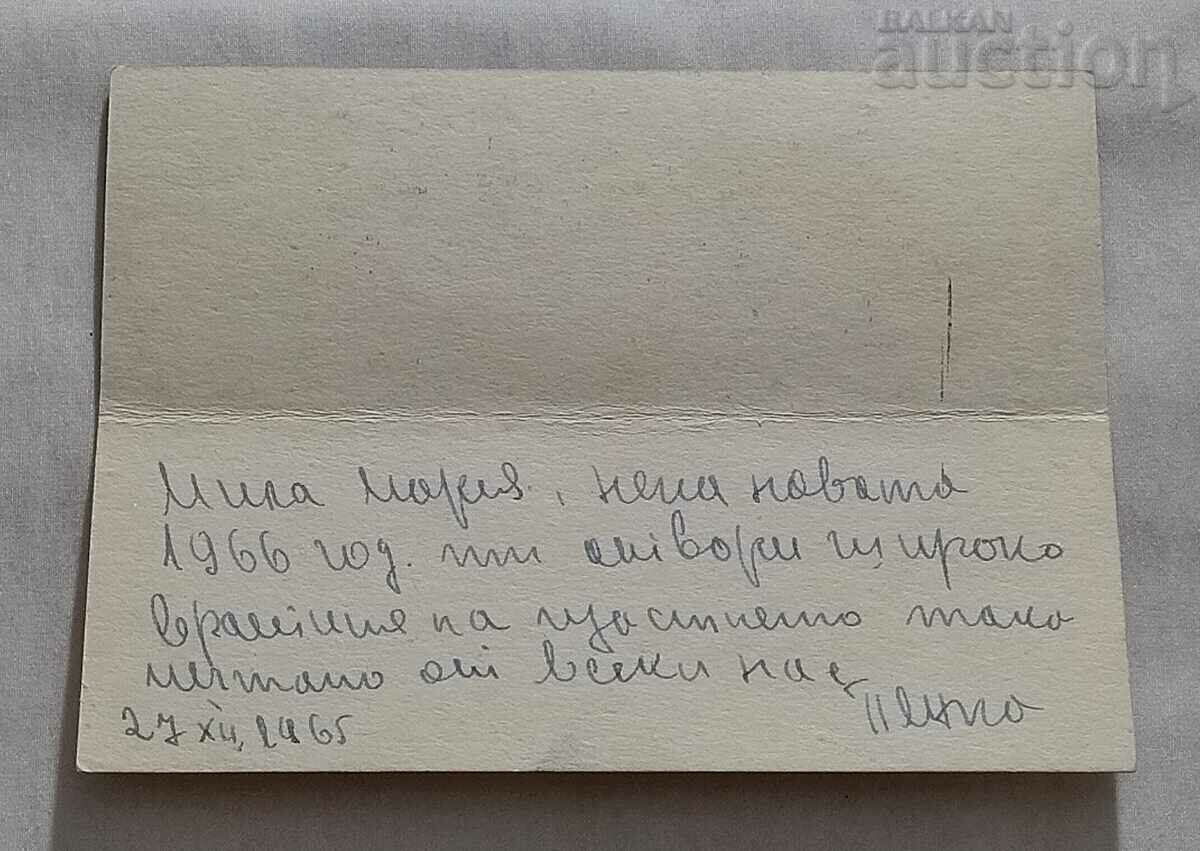 BALKAN
auction
Мила Мария, нека новата
1966 год. ти отвори широко
вратите на щастието тако
мечтано от всеки нас
27 XII, 1965